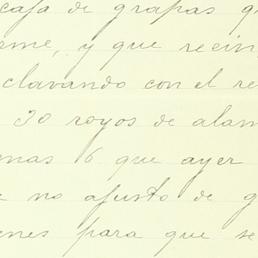 caja de grapas q
eme, y que recin
clavando con el re
30 royos de alam
mas 6 que ayer
no ajusto de g
enes para que se